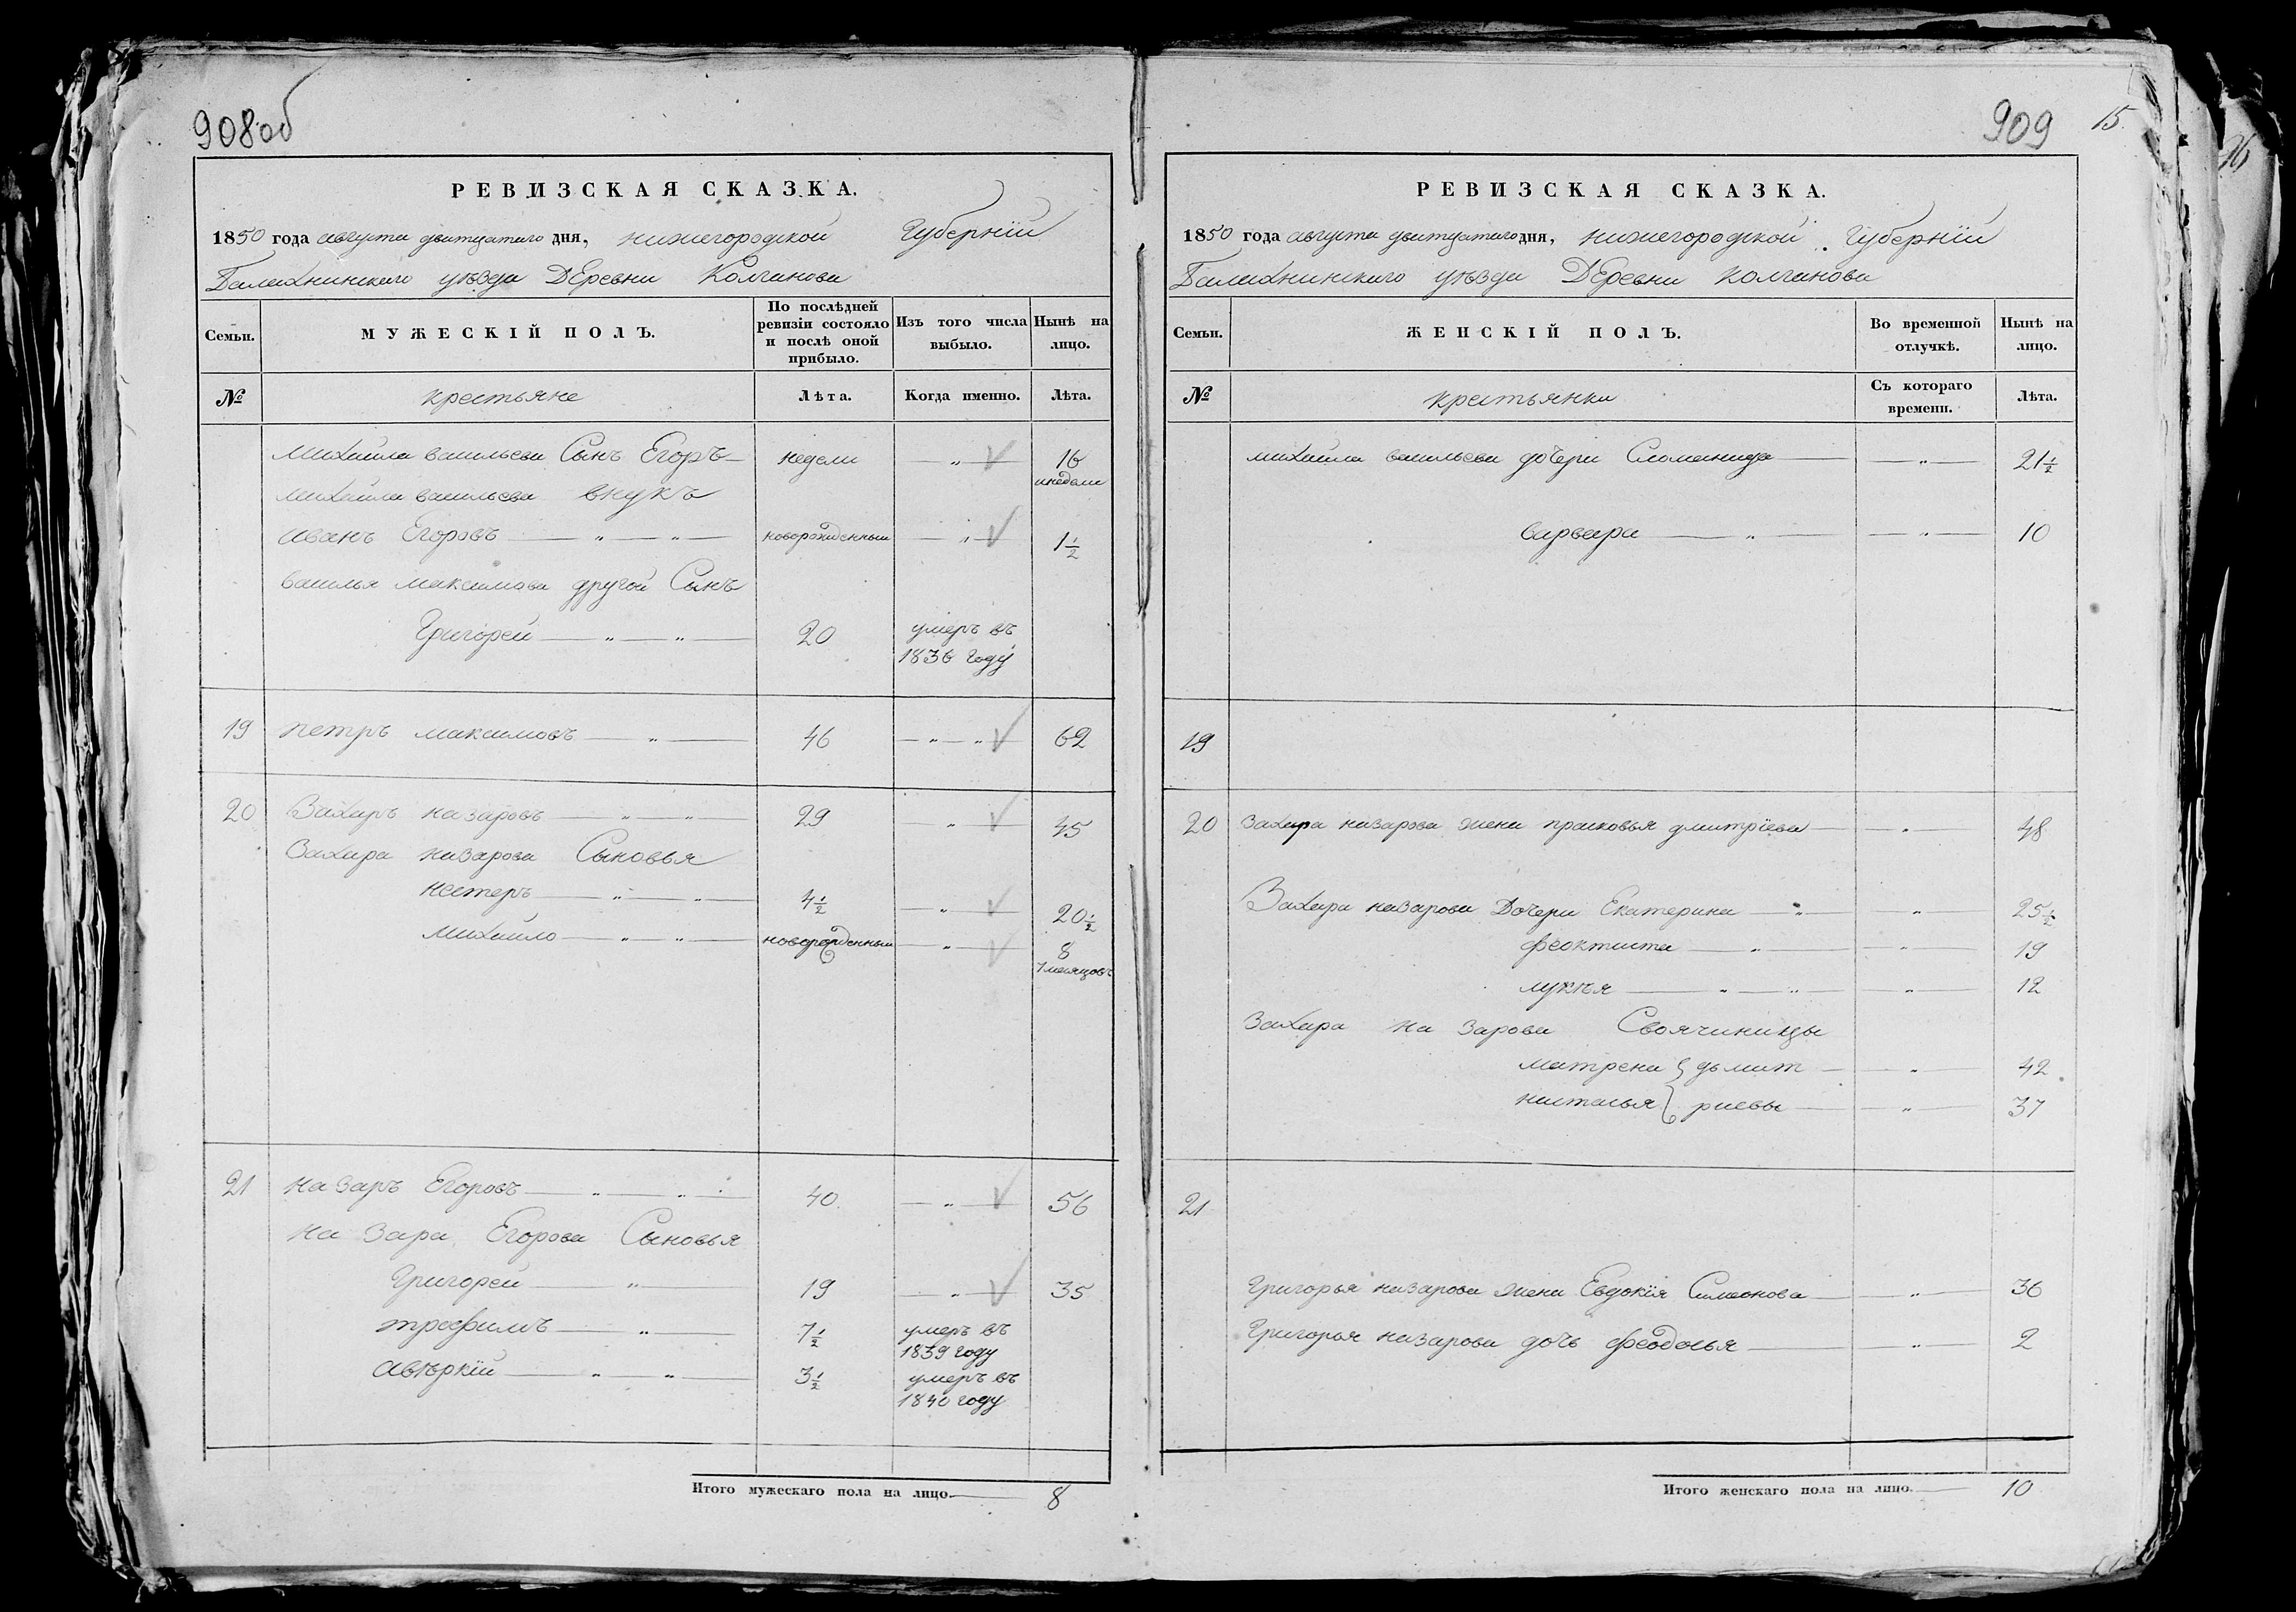 908об
РЕВИЗСКАЯ СКАЗКА.
1850 года августа дватцатаго дня, нижегородской Губерніи
Балахнинскаго уѣзда Деревни Колчинова
Семьи. МУЖЕСКІЙ ПОЛЪ. По послѣдней ревизіи состояло и послѣ оной прибыло. Изъ того числа выбыло. Нынѣ на лицо.
№ крестьяне Лѣта. Когда именно. Лѣта.
михаила васильева Сынъ Егоръ недели 16 инедели
михаила васильева внукъ
иванъ Егоровъ новорожденный 1 1/2
василья максимова другой Сынъ
Григорей 20 умеръ въ 1836 году
19 петръ максимовъ 46 62
20 Захаръ назаровъ 29 45
Захара назарова Сыновья
нестеръ 4 1/2 20 1/2
михайло новорожденный 8 7 месяцовъ
21 на заръ Егоровъ 40 56
на зара Егорова Сыновья
Григорей 19 35
трофимъ 7 1/2 умеръ въ 1839 году
авѣркій 3 1/2 умеръ въ 1840 году
Итого мужескаго пола на лицо 8
909 15.
РЕВИЗСКАЯ СКАЗКА.
1850 года августа дватцатаго дня, нижегородской Губерніи
Балахнинскаго уѣзда Деревни колчинова
Семьи. ЖЕНСКІЙ ПОЛЪ. Во временной отлучкѣ. Нынѣ на лицо.
№ крестьянки Съ котораго времени. Лѣта.
михаила васильева дочери Соломанида 21 1/2
варвара 10
19
20 захара назарова жена прасковья дмитріева 48
Захара назарова Дочери Екатерина 25 1/2
феоктиста 19
лукѣя 12
захара на зарова Своячиницы
матрена } дьмит 42
наталья } риевы 37
21
Григорья назарова жена Евдокія Симеонова 36
Григорья назарова дочь феодосья 2
Итого женскаго пола на лицо. 10